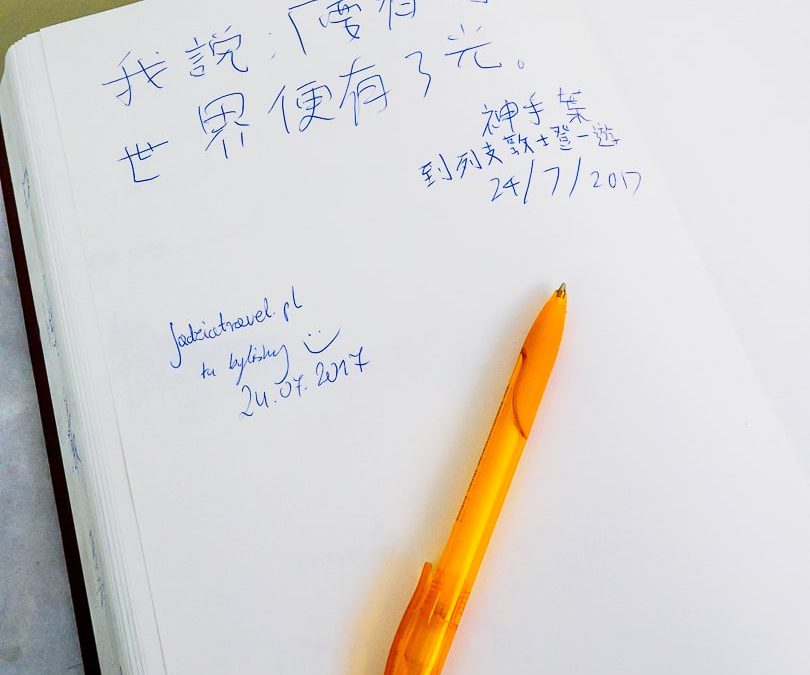 我說：「要有
世界便有了光。
神手葉
到列支敦士登一遊
24/7/2017
jadziatravel.pl
tu byliśmy
24.07.2017